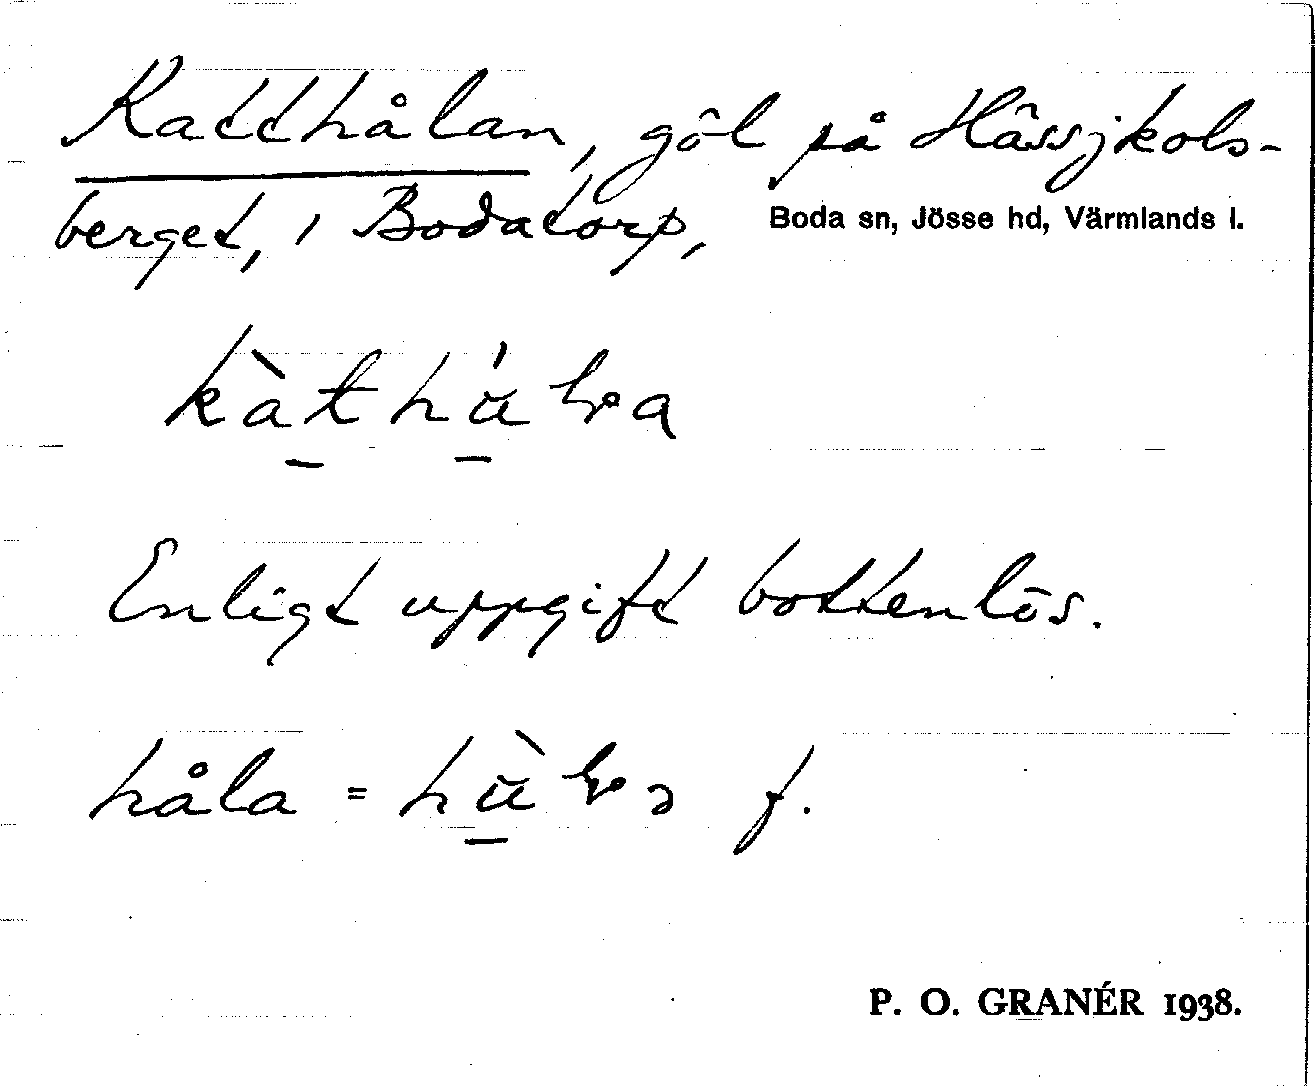 Katthålan, göl på Hâssjkols-
berget, i Bodatorp, Boda sn, Jösse hd, Värmlands l.
Enligt uppgift bottenlös.
håla = f.
P. O. GRANÉR 1938.